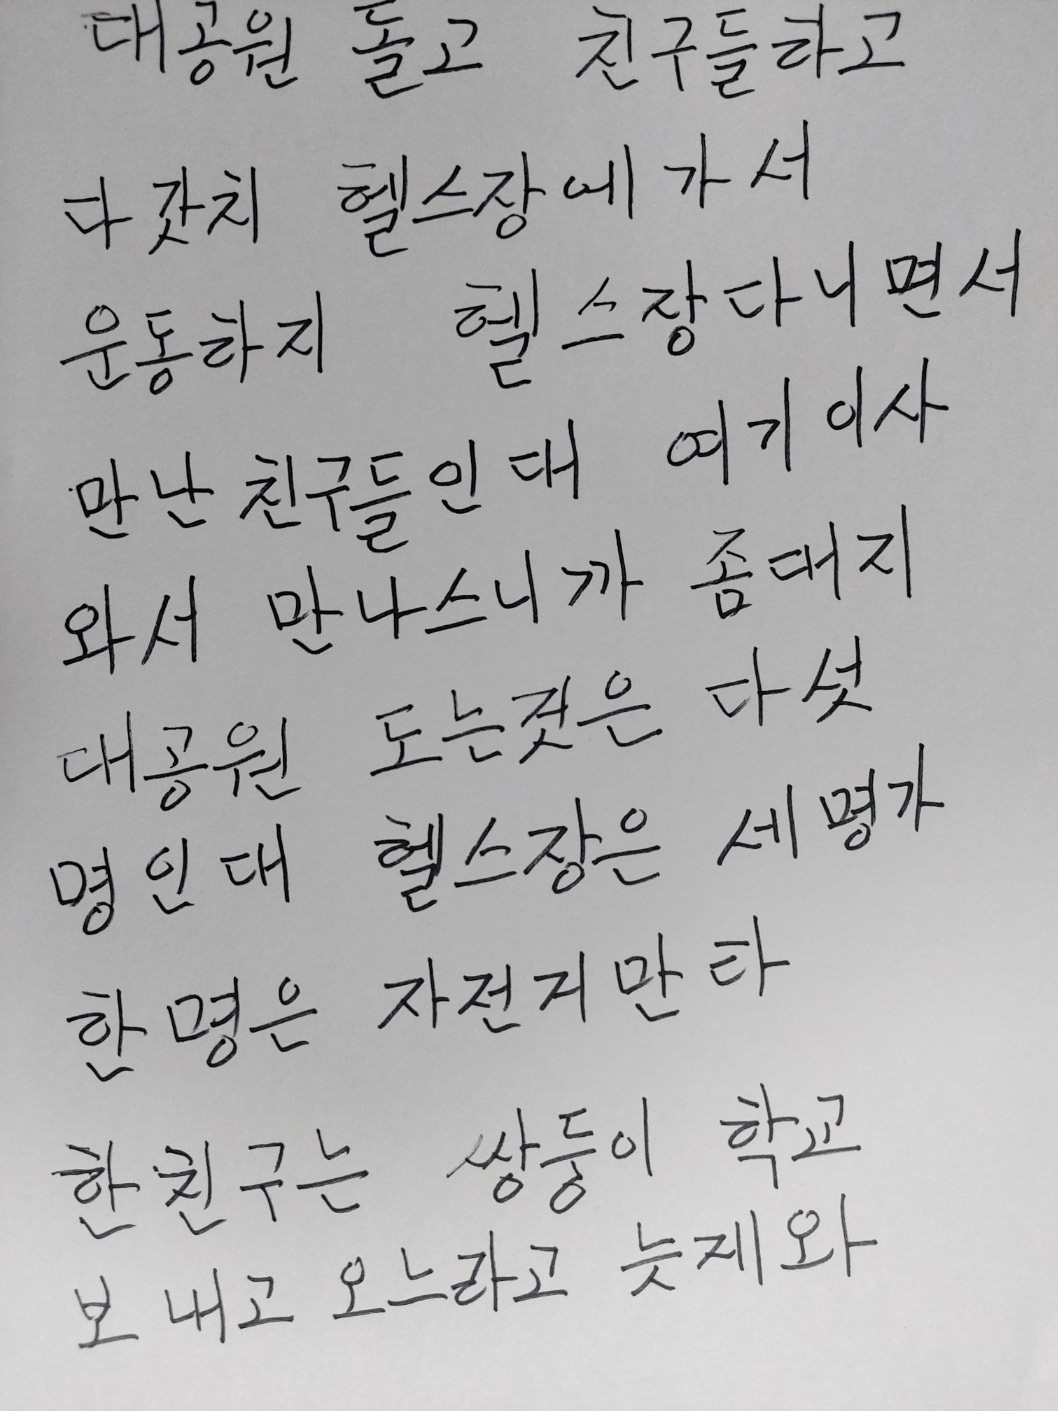 대공원 돌고 친구들하고
다 갓치 헬스장에 가서
운동하지 헬스장다니면서
만난 친구들인대 여기 이사
와서 만나스니까 좀대지
대공원 도는것은 다섯
명인대 헬스장은 세명가
한명은 자전지만 타
한친구는 쌍둥이 학교
보내고 오느라고 늣제와